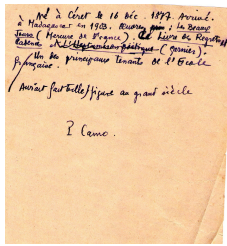 Né à Céret le 16 Déc. 1877. Arrivé
à Madagascar en 1903. Œuvres : Les Beaux
Jours (Mercure de France). Le Livre des Regrets
et (Garnier).
Un des principaux Tenants de l'Ecole
française.
Aurait fait belle figure au grand siècle
P Camo.